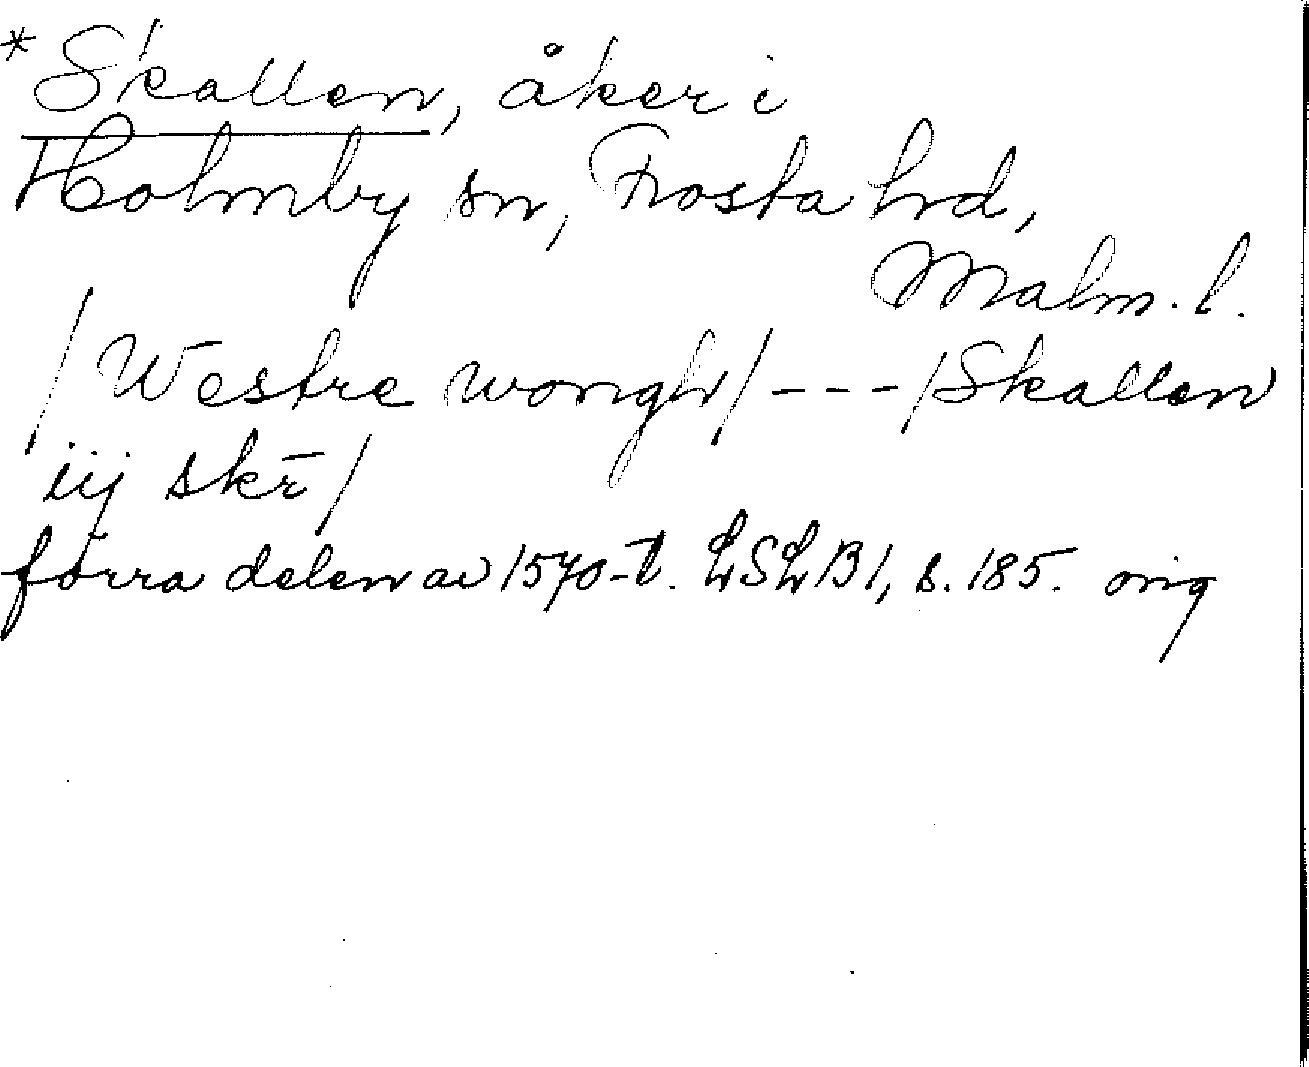 *Skallen, åker i
Holmby sn, Frosta hrd,
Malm. l.
/Westre wongh/---/Skallen
iij skr̄/
förra delen av 1570-t. LSLB1, s. 185. orig